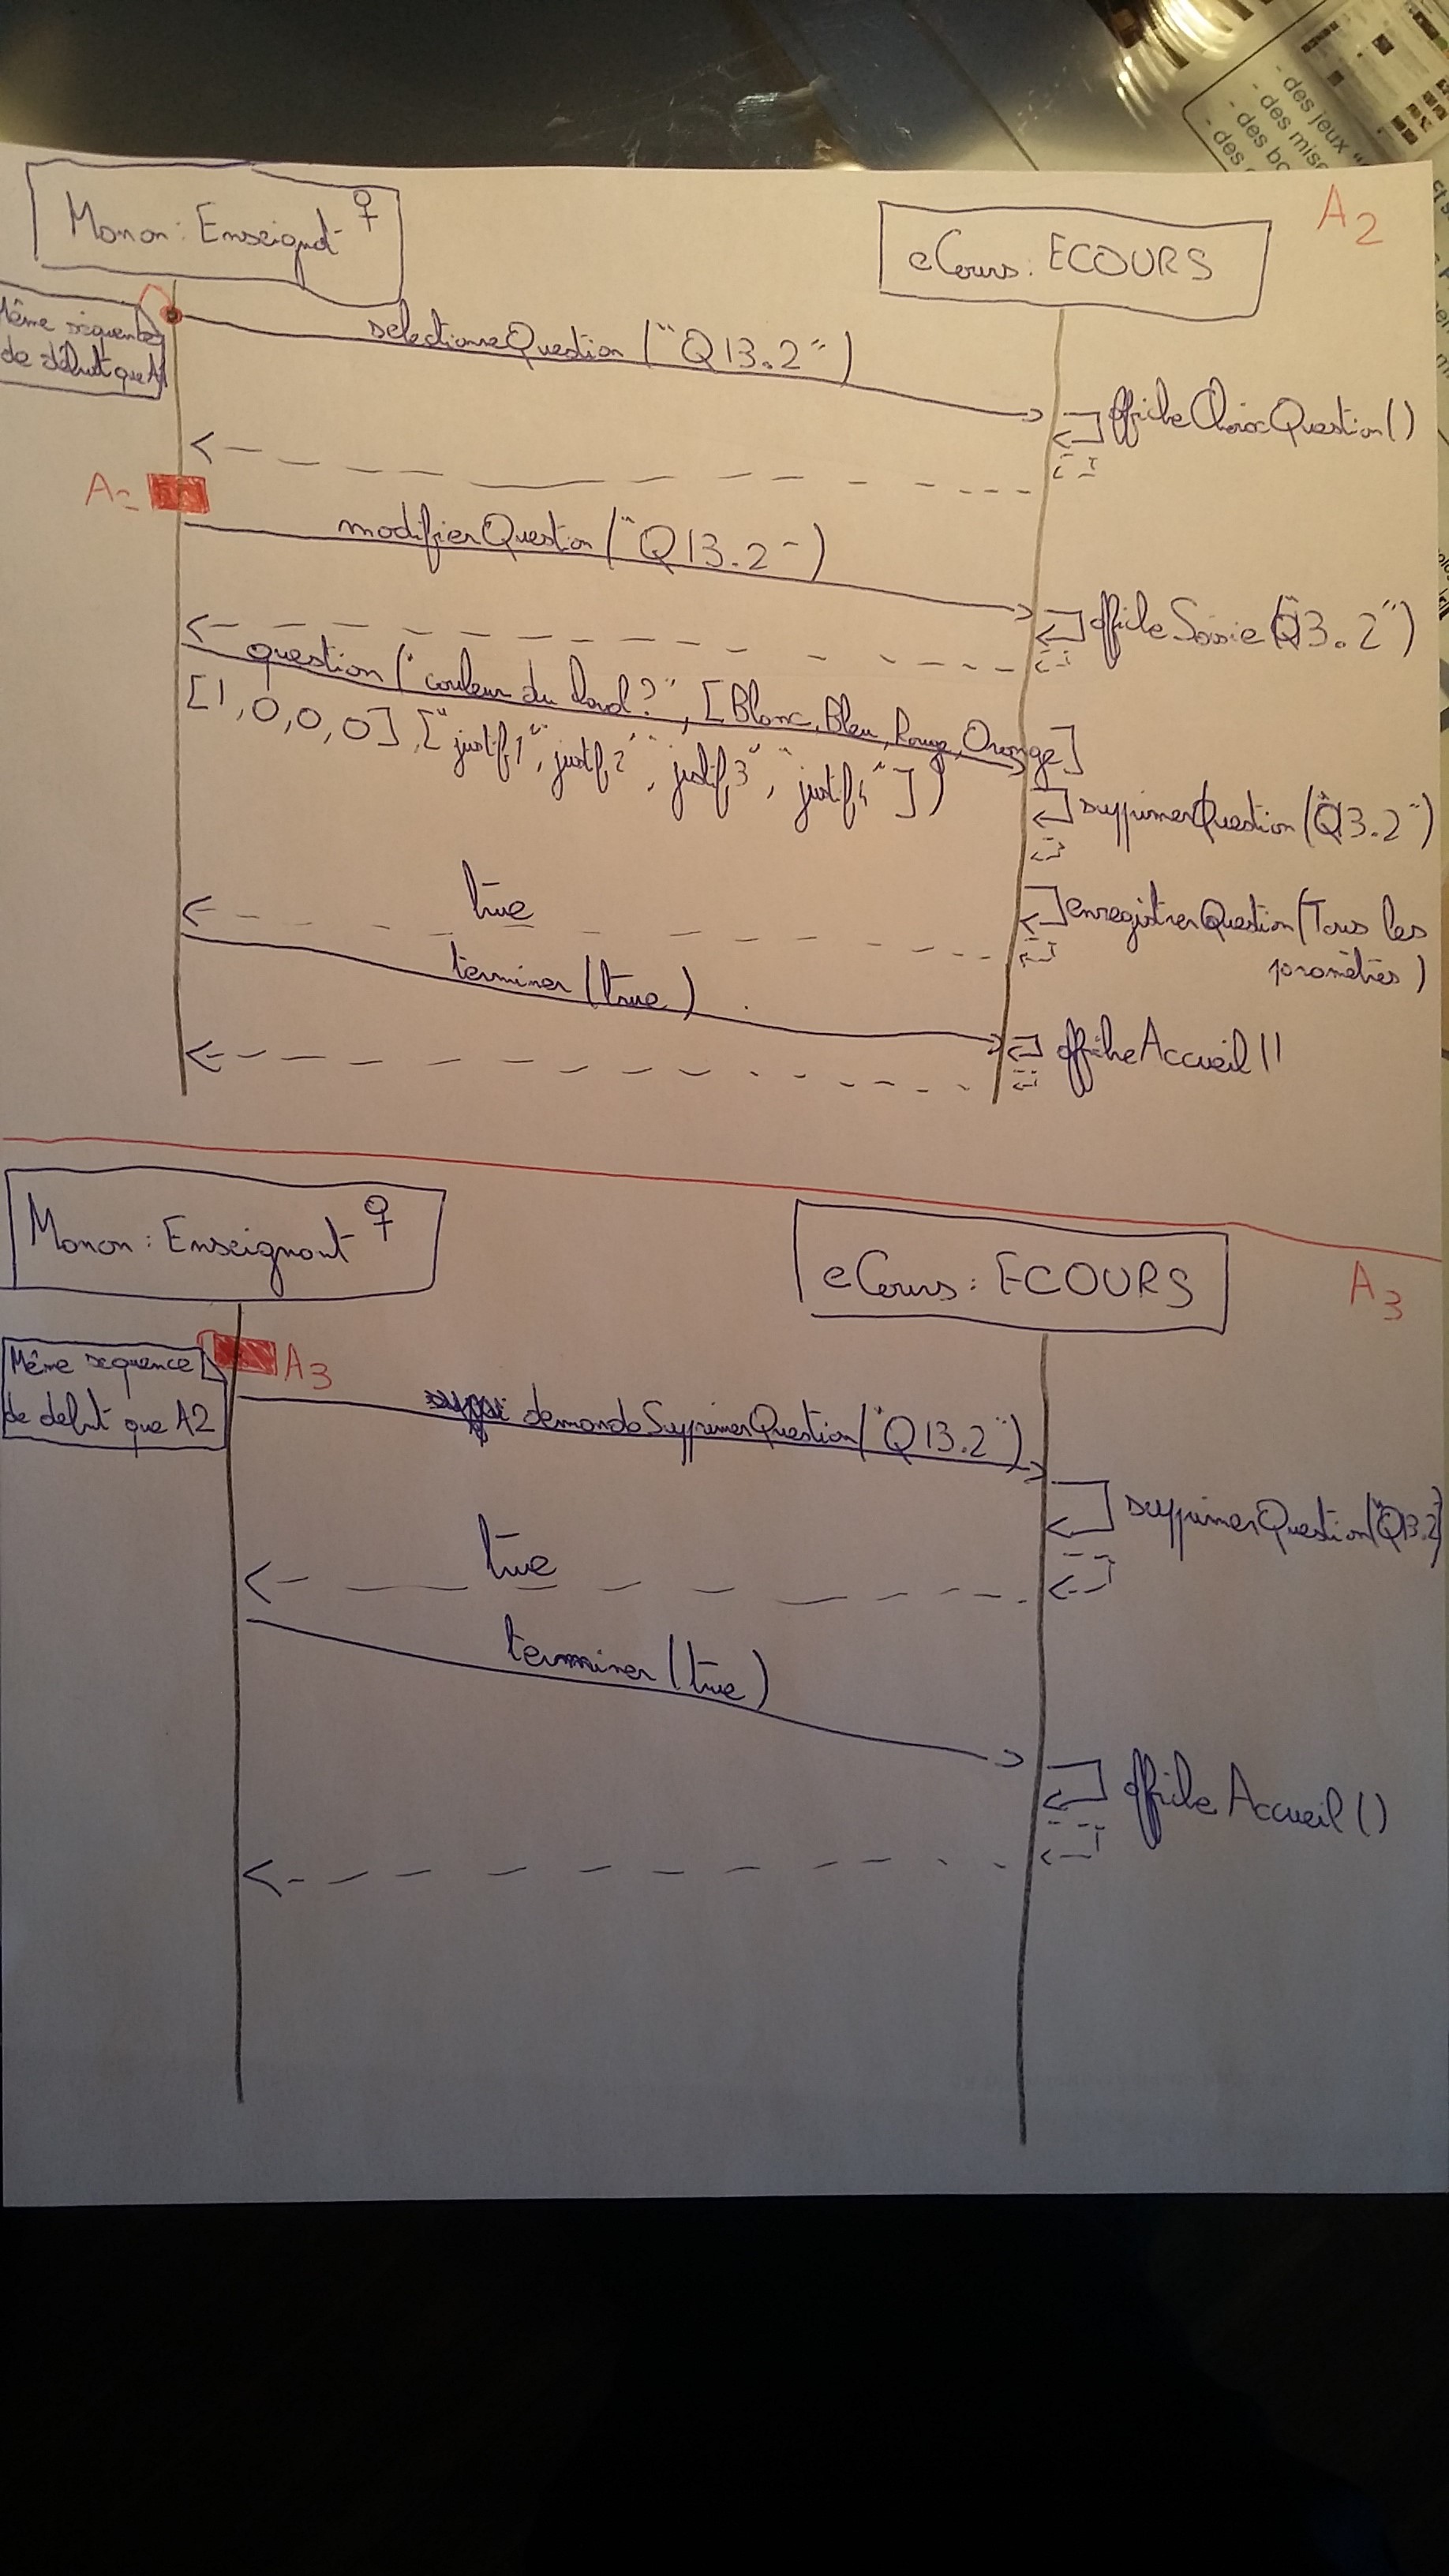 - des jeux "
- des mise
- des bo
- des
A2
Manon : Enseignat
eCours : ECOURS
Même séquence
de début que A1
selectionneQuestion ("Q13.2")
afficheChoixQuestion()
A2
modifierQuestion ("Q13.2")
afficheSaisie("Q13.2")
question ("couleur du
?", [Blanc, Bleu, Rouge, Orange]
[1,0,0,0], ["justif1", "justif2", "justif3", "justif4"])
supprimerQuestion ("Q13.2")
true
enregistrerQuestion(Tous les
paramètres)
terminer (true)
afficheAccueil()
Manon : Enseignant
eCours : ECOURS
A3
A3
Même sequence
de debut que A2
demandeSupprimerQuestion("Q13.2")
supprimerQuestion("Q13.2")
true
terminer (true)
afficheAccueil()